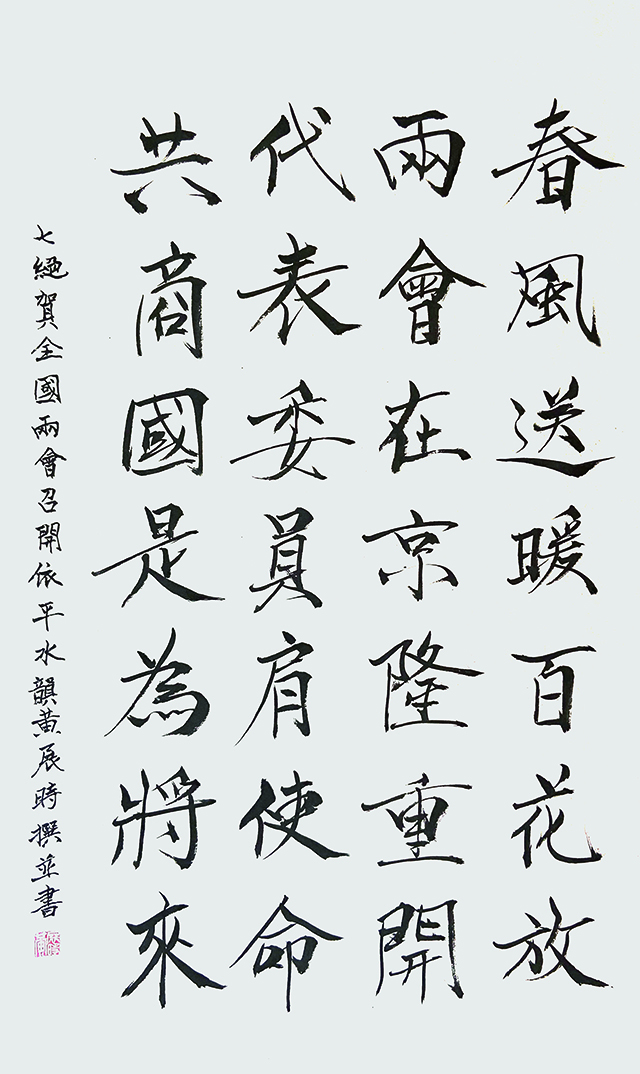 春風送暖百花放
兩會在京隆重開
代表委員肩使命
共商國是為將來
七絕賀全國兩會召開依平水韻黃展時撰並書